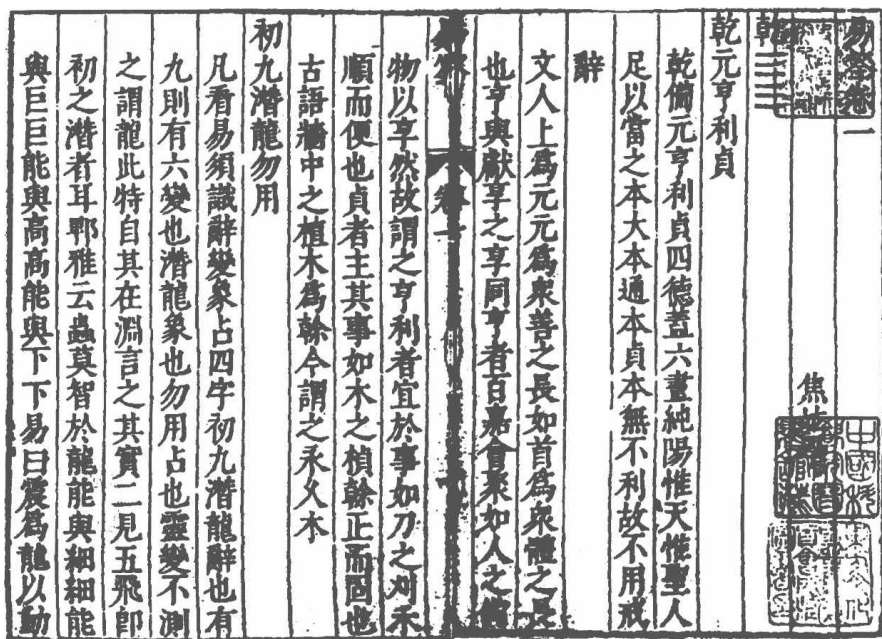 易筌卷一
焦
乾
乾元亨利貞
乾備元亨利貞四德蓋六畫純陽惟天惟聖人
足以當之本大本通本貞本無不利故不用戒
辭
文人上為元元為衆善之長如首為衆體之長
也亨與獻享之享同亨者百嘉會聚如人之備
卷一
物以享然故謂之亨利者宜於事如刀之刈禾
順而便也貞者主其事如木之楨榦正而固也
古語牆中之植木為榦今謂之永久木
初九潛龍勿用
凡看易須識辭變象占四字初九潛龍辭也有
九則有六變也潛龍象也勿用占也靈變不測
之謂龍此特自其在淵言之其實二見五飛即
初之潛者耳鄆雅云蟲莫智於龍龍能與細細能
與巨巨能與高高能與下下易曰震為龍以動